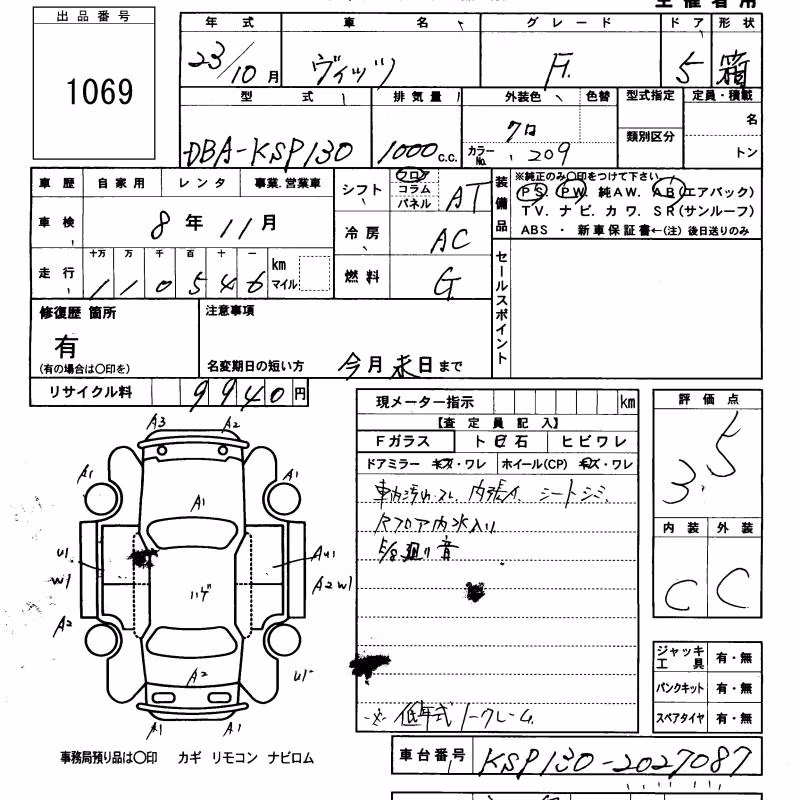 出品番号
1069
年式 車名 グレード ドア 形状
23/10月 ヴィッツ F. 5 箱
型式 排気量 外装色 色替 型式指定 定員・積載
DBA-KSP130 1000c.c. クロ カラーNo. 209 類別区分 名 トン
車歴 自家用 レンタ 事業.営業車
車検 8年11月
走行 十万 万 千 百 十 一
110546 km マイル
シフト フロア コラム パネル AT
冷房 AC
燃料 G
装備品 ※純正のみ〇印をつけて下さい
PS. PW. 純AW. AB(エアバック)
TV. ナビ. カワ. SR(サンルーフ)
ABS ・ 新車保証書←(注) 後日送りのみ
セールスポイント
修復歴 箇所
有
(有の場合は〇印を)
注意事項
名変期日の短い方 今月末日まで
リサイクル料 9940円
現メーター指示 km
【査定員記入】
Fガラス ト目石 ヒビワレ
ドアミラー キズ・ワレ ホイール(CP) キズ・ワレ
車内汚れ スレ 内張A. シートシミ.
Rフロア内水入り
廻り音
※ 低年式ノークレーム
評価点
3.5
内装 外装
C C
ジャッキ工具 有・無
パンクキット 有・無
スペアタイヤ 有・無
A3 A2
A1 A1
A1
U1 AU1
W1 A2 W1
ハゲ
A2
A2 U1
A1 A1
事務局預り品は〇印 カギ リモコン ナビロム
車台番号 KSP130-2027087